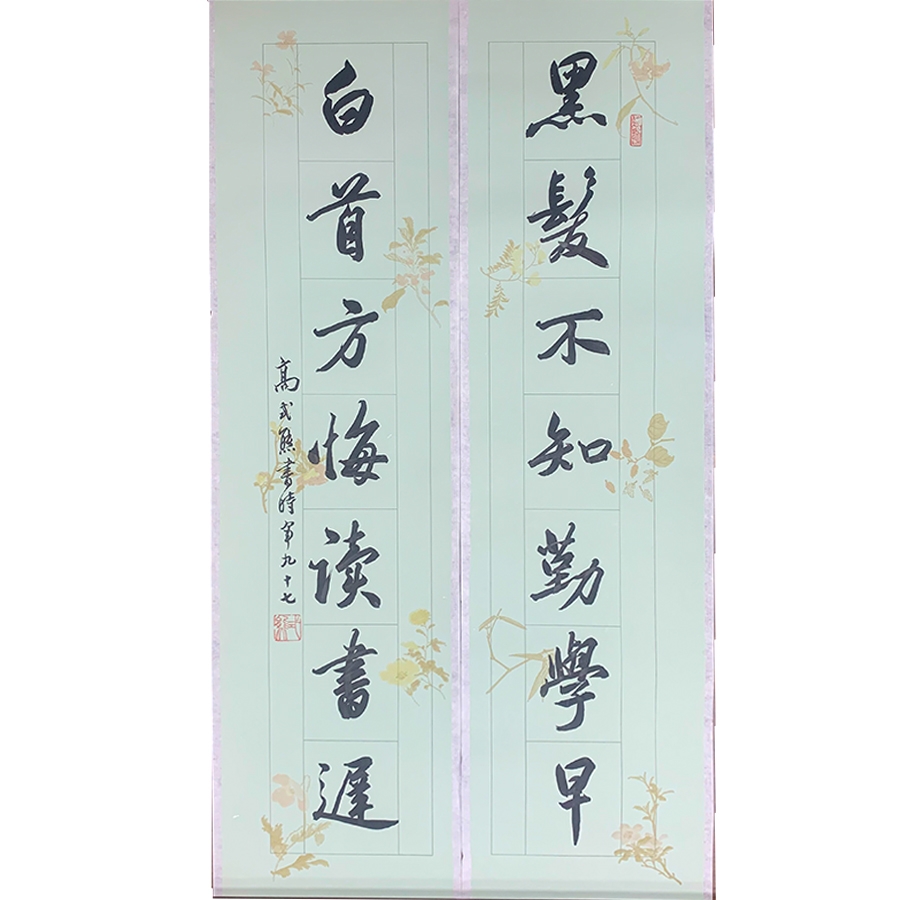 黑髮不知勤學早
白首方悔读書遲
高式熊書時年九十七